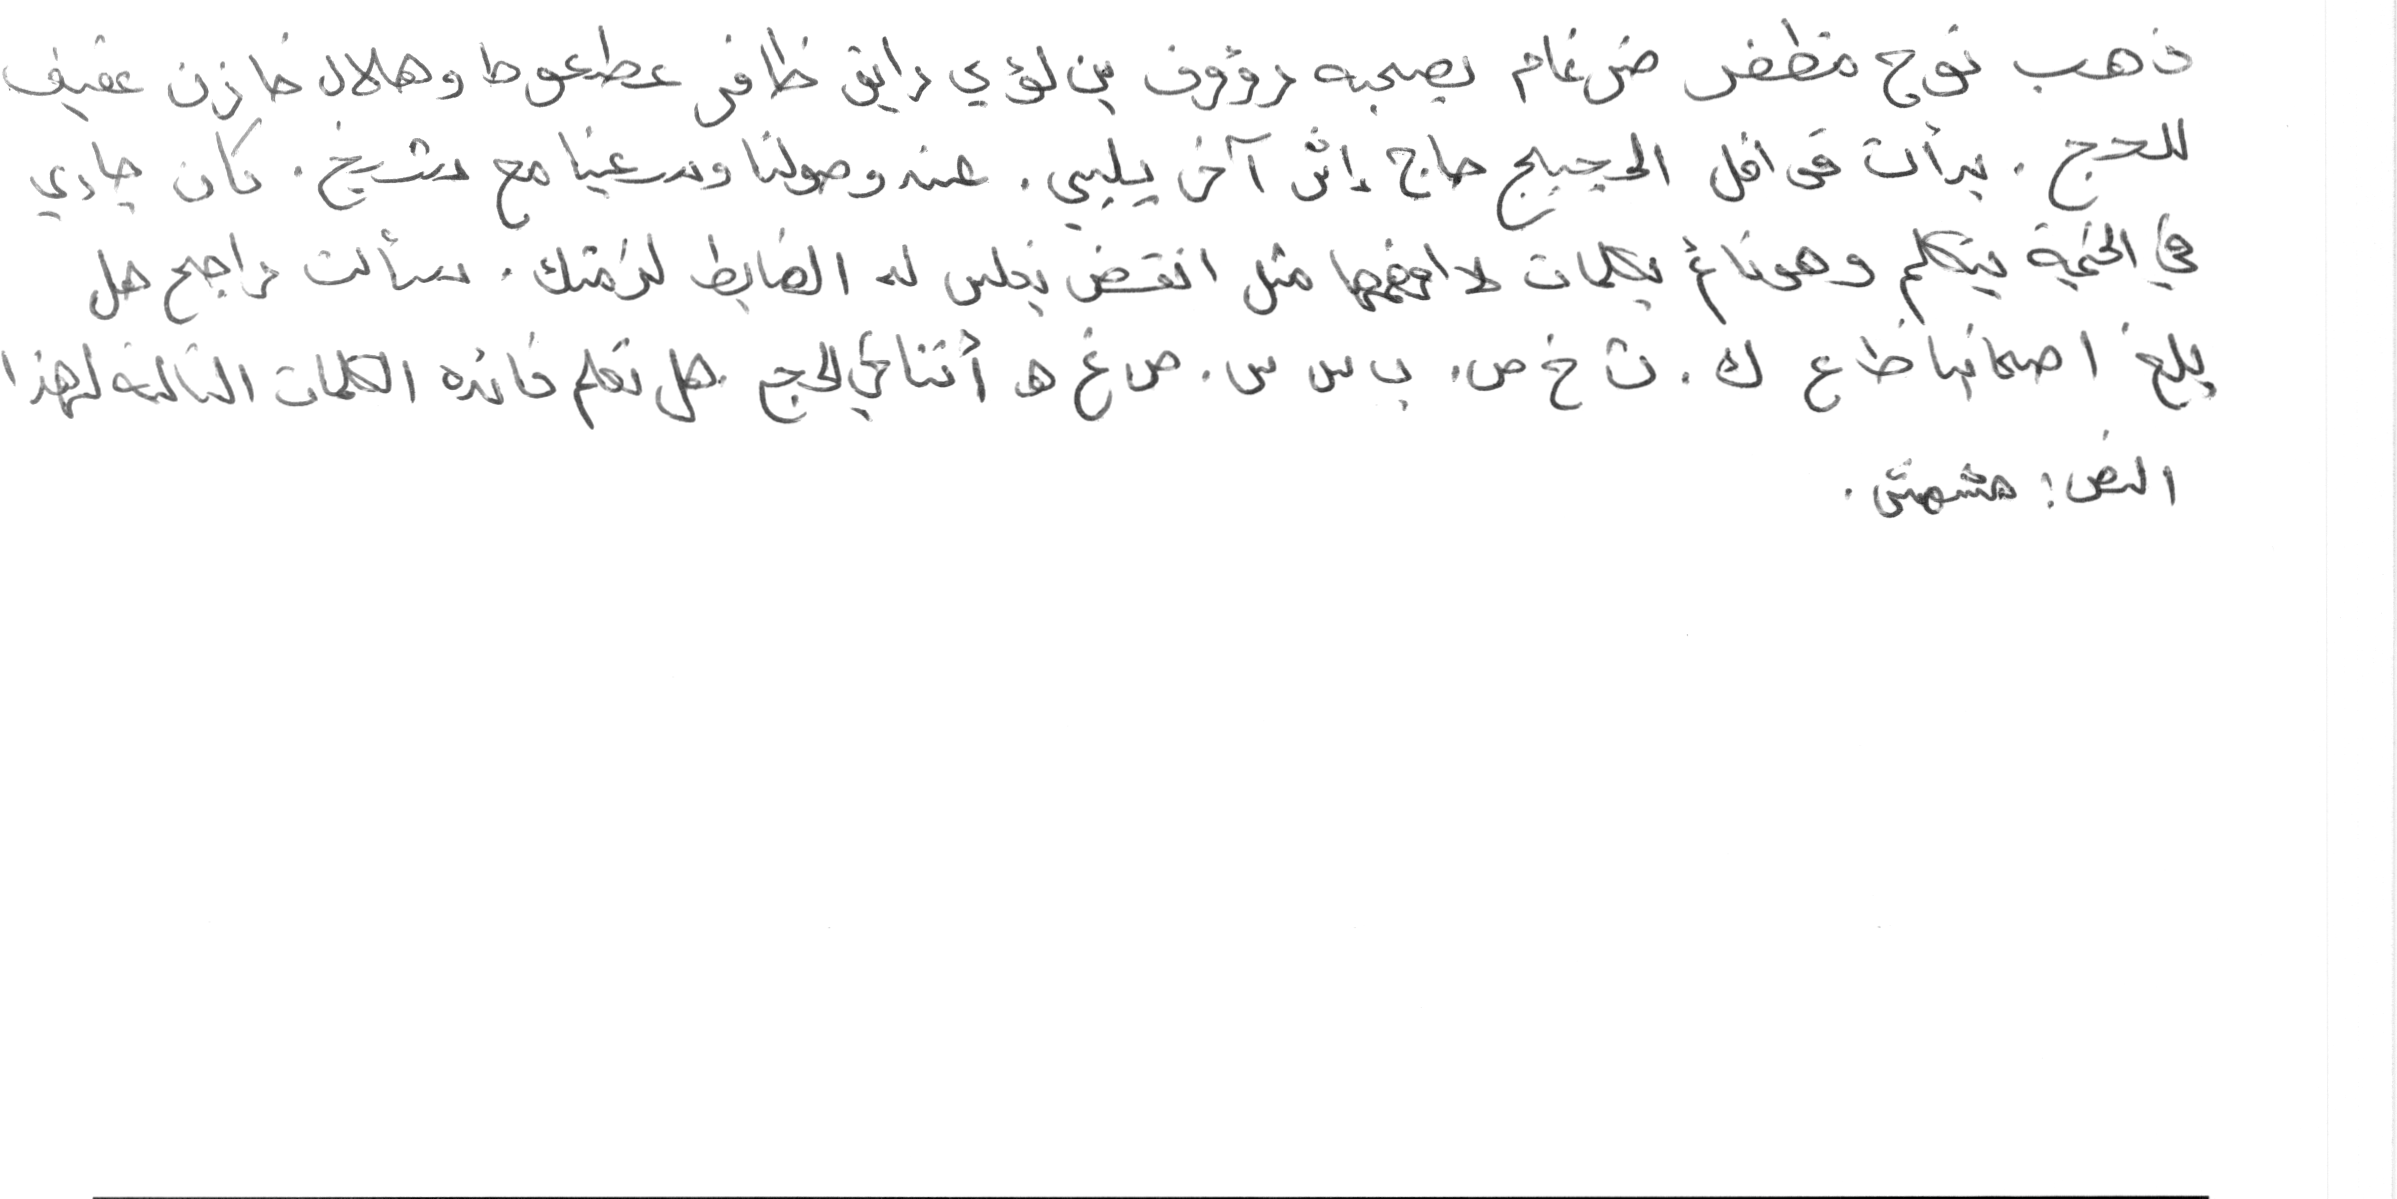 ذهب نوح مظفر ضرغام بصحبه رؤوف بن لؤي رايق ظافر عطعوط وهلال خازن عفيف
للحج . بدأت قوافل الحجيج حاج إثر آخر يلبي . عند وصولنا وسرعينا مع مشريخ . كان جاري
في الخيمة يتكلم وهو نائم بكلمات لا افهمها مثل انقض بخلس له الضابط لزمتك . سألت راجح هل
بلغ اصحابنا ظ ع ك . ث خ ص . ب س س . ص غ ه أثناء الحج . هل تعلم فائده الكلمات التالية لهذا
النص : مشمش .